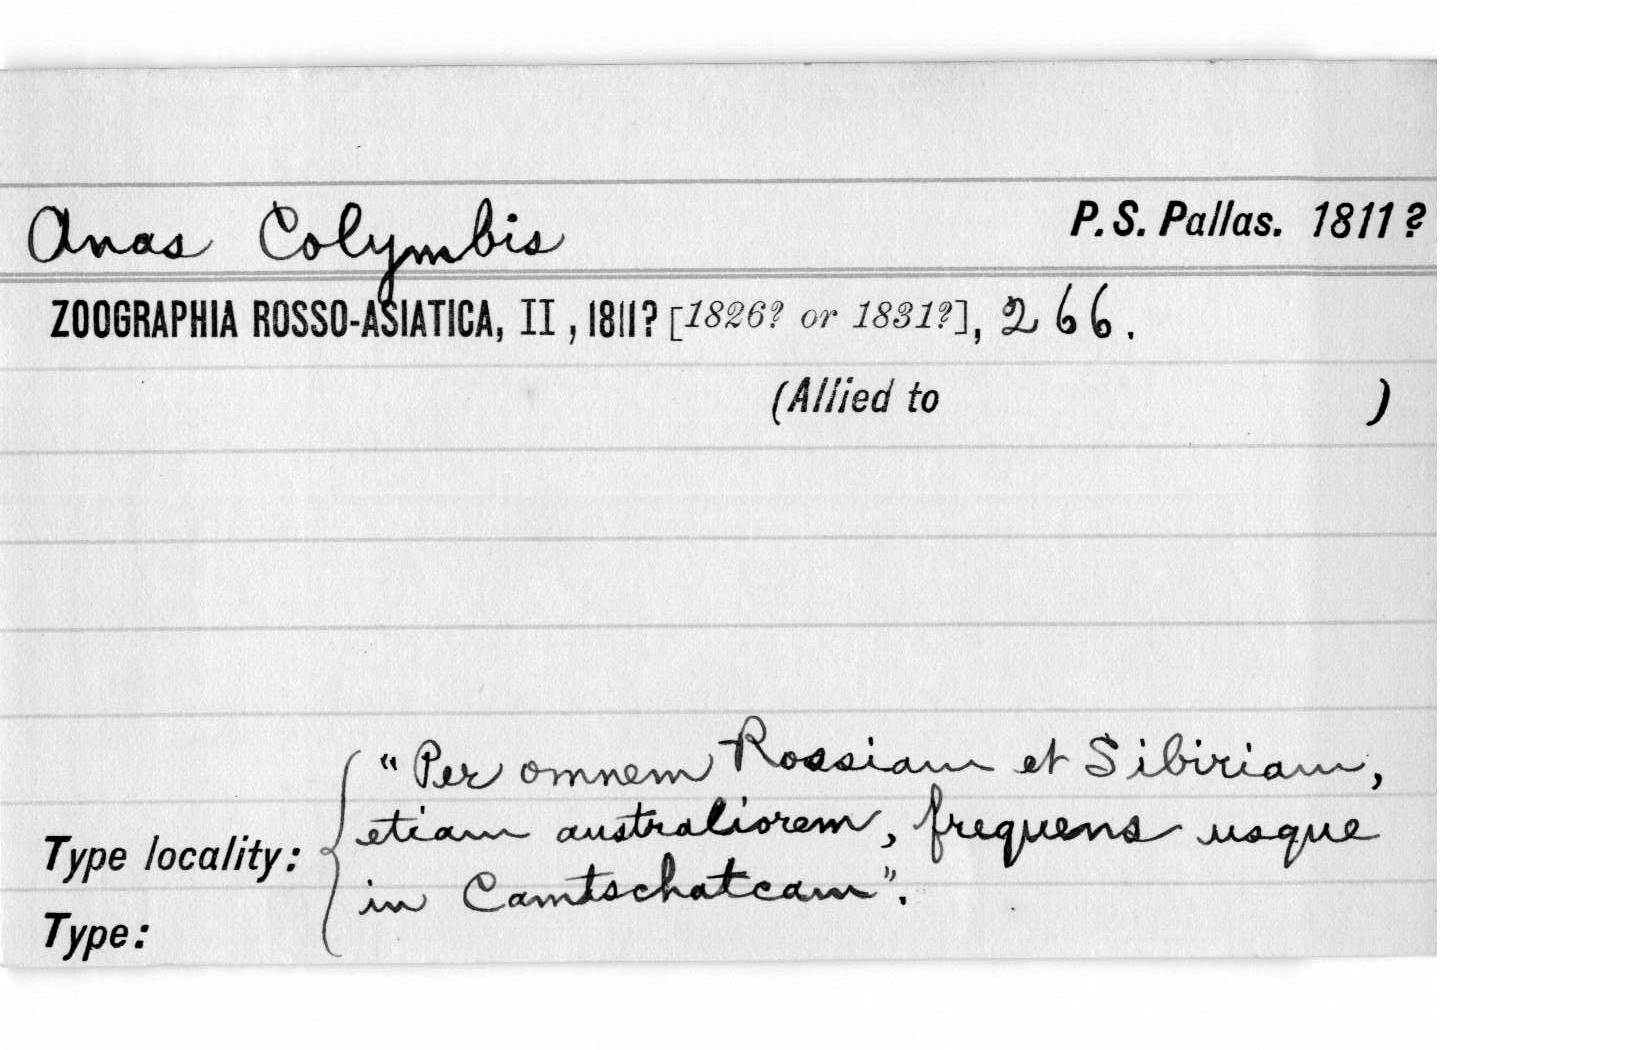 Anas Colymbis P. S. Pallas. 1811?
ZOOGRAPHIA ROSSO-ASIATICA, II, 1811? [1826? or 1831?], 266.
(Allied to )
"Per omnem Rossiam et Sibiriam,
etiam australiorem, frequens usque
Type locality:
in Camtschatcam".
Type: